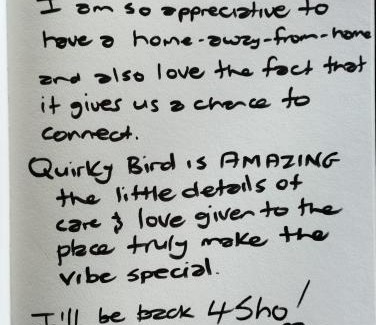 I am so appreciative to
have a home-away-from-home
and also love the fact that
it gives us a chance to
connect.
Quirky Bird is AMAZING
the little details of
care & love given to the
place truly make the
vibe special.
I'll be back 4Sho!